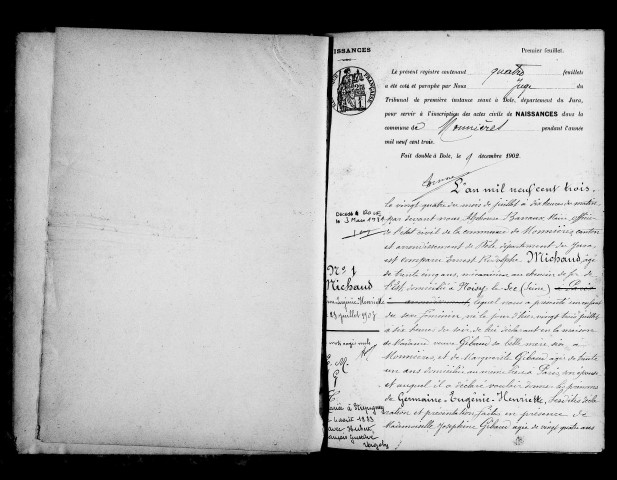 NAISSANCES
Premier feuillet.
Le présent registre contenant quatre feuillets
a été coté et paraphé par Nous Juge du
Tribunal de première instance séant à Dole, département du Jura,
pour servir à l'inscription des actes civils de NAISSANCES dans la
commune de Monnières pendant l'année
mil neuf cent trois.
Fait double à Dole, le 9 décembre 1902.
L'an mil neuf cent trois,
le vingt quatre du mois de juillet à dix heures du matin,
par devant nous, Alphonse maire, officier
de l'état civil de la commune de Monnières, canton
et arrondissement de Dole, département du Jura,
est comparu Ernest Rodolphe Michaud, âgé
de trente cinq ans, mécanicien au chemin de fer de
l'Est, domicilié à Noisy le Sec (Seine)
lequel nous a présenté un enfant
du sexe féminin, né le jour d'hier, vingt trois juillet
à dix heures du soir, de lui déclarant en la maison
de Madame veuve Gibaud sa belle mère, sise à
Monnières, et de Marguerite Gibaud âgée de trente
un ans domiciliée au même lieu à Paris, son épouse
et auquel il a déclaré vouloir donner les prénoms
de Germaine-Eugénie-Henriette, Lesdites décla-
ration et présentation faites en présence de
Mademoiselle Joséphine Gibaud âgée de vingt quatre ans
Décédée à
le 3 Mars
N° 1
Michaud
Eugénie-Henriette
juillet 1903
G
août 1923
avec